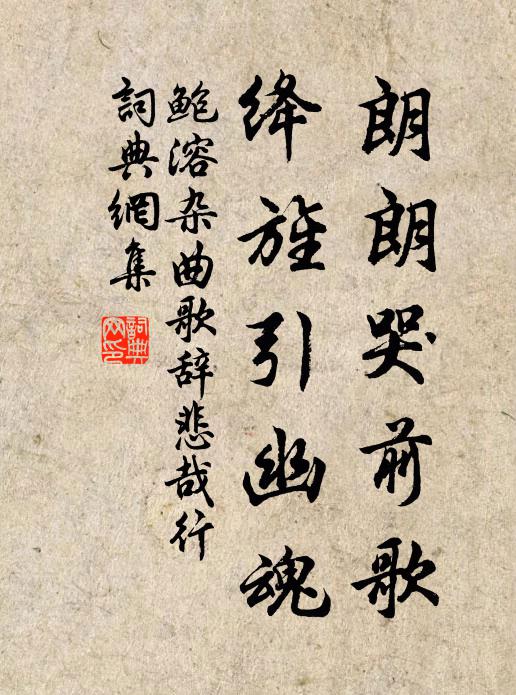 朗朗哭前歌
绛旌引幽魂
鲍溶杂曲歌辞悲哉行
詞典網集
詞典網印